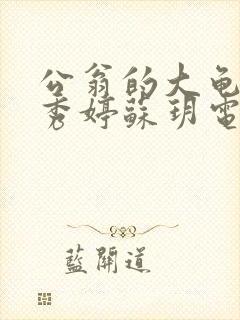 公翁的大龟
秀婷蘇玥電
藍開道